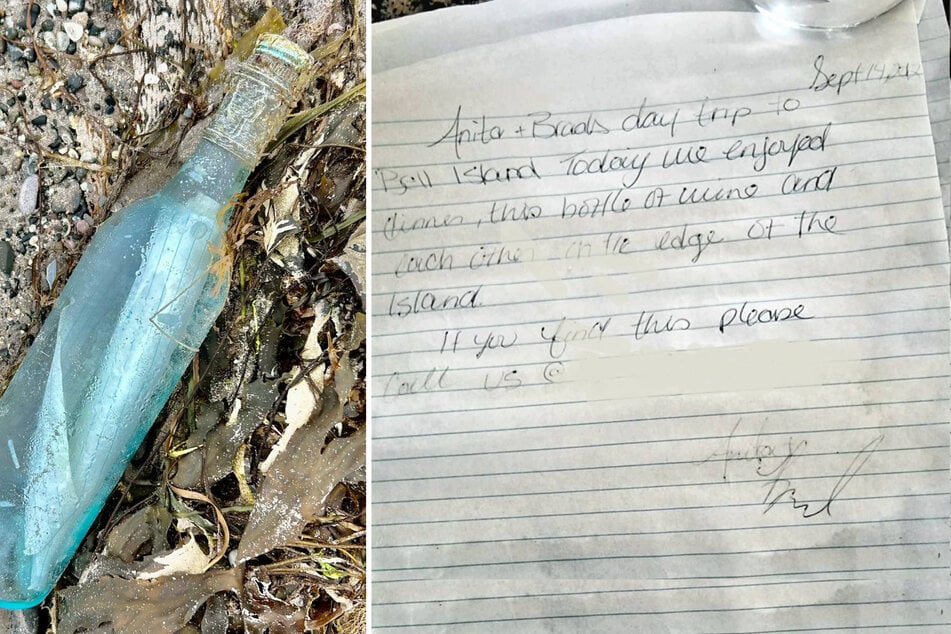 Sept 14, 2012
Anita + Brads day trip to
Bell Island Today we enjoyed
dinner, this bottle of wine and
each other on the edge of the
Island.
If you find this please
call us @
Anita
Brad